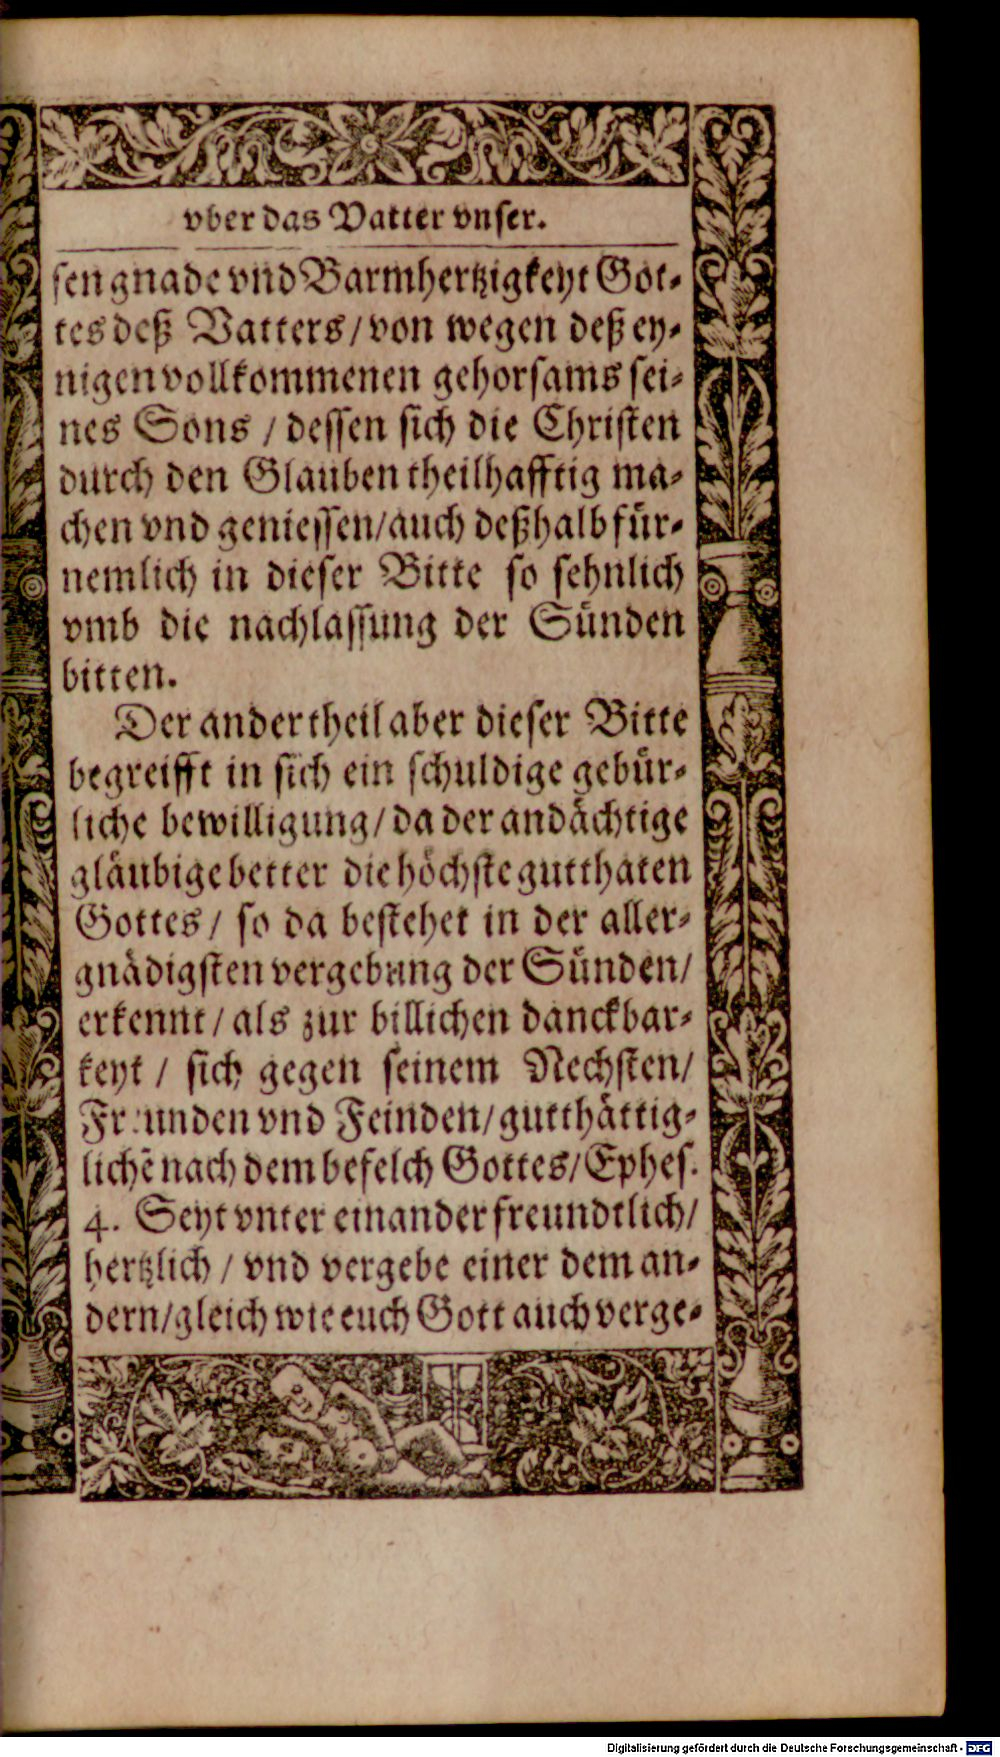 vber das Vatter vnser.
sen gnade vnd Barmhertzigkeyt Got-
tes deß Vatters/ von wegen deß ey-
nigen vollkommenen gehorsams sei-
nes Sons / dessen sich die Christen
durch den Glauben theilhafftig ma-
chen vnd geniessen/ auch deßhalb für-
nemlich in dieser Bitte so sehnlich
vmb die nachlassung der Sünden
bitten.
Der ander theil aber dieser Bitte
begreifft in sich ein schuldige gebür-
liche bewilligung/ da der andächtige
gläubige better die höchste gutthaten
Gottes/ so da bestehet in der aller-
gnädigsten vergebung der Sünden/
erkennt/ als zur billichen danckbar-
keyt / sich gegen seinem Nechsten/
Freunden vnd Feinden/ gutthättig-
lichē nach dem befelch Gottes/ Ephes.
4. Seyt vnter einander freundtlich/
hertzlich / vnd vergebe einer dem an-
dern/ gleich wie euch Gott auch verge-
Digitalisierung gefördert durch die Deutsche Forschungsgemeinschaft - DFG